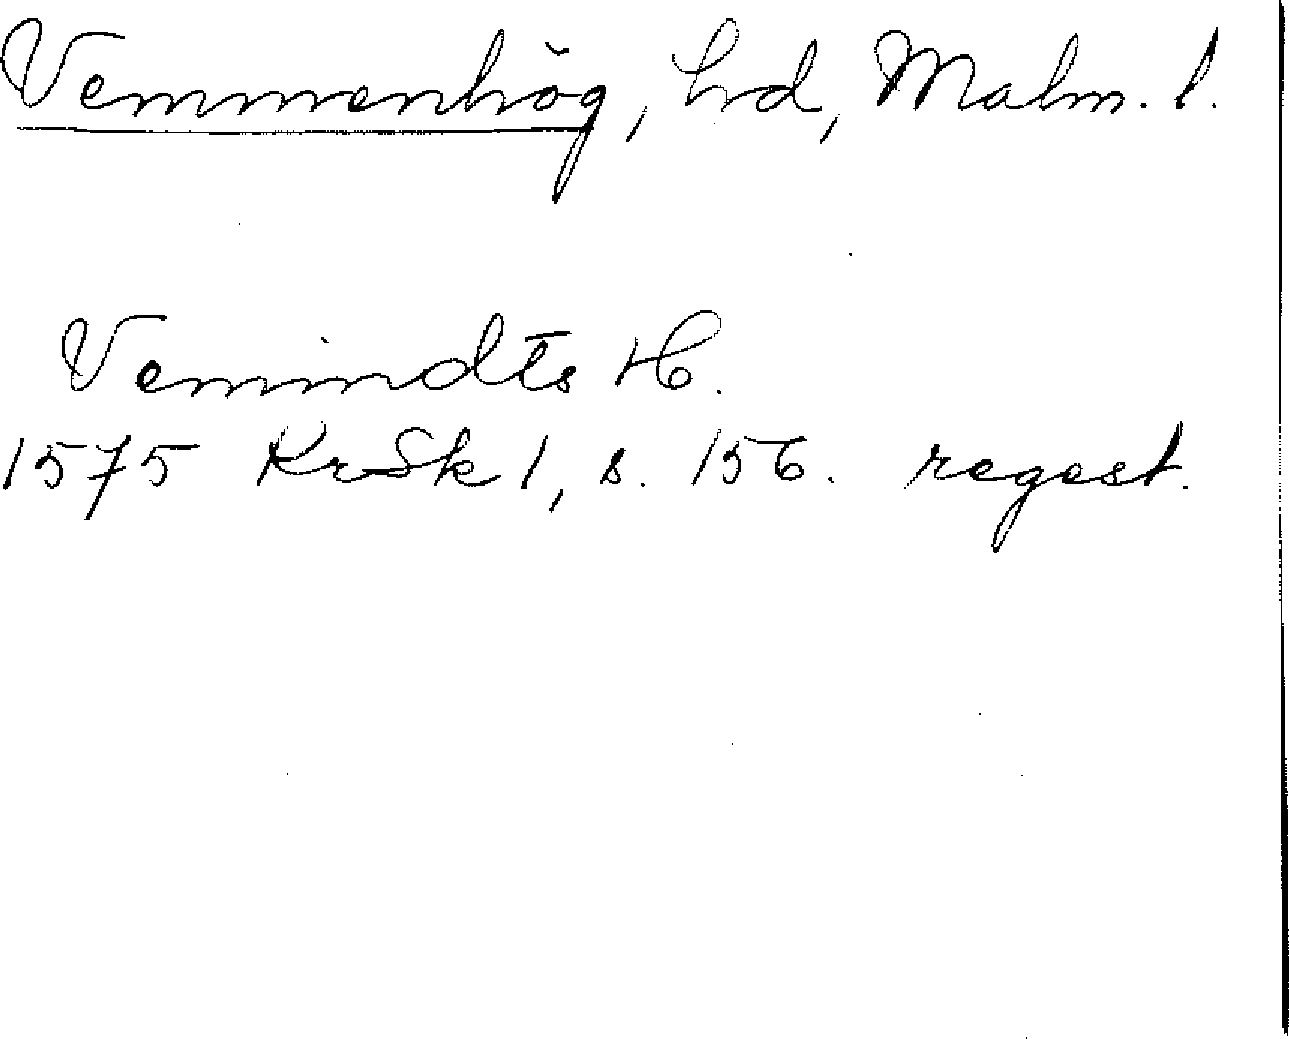 Vemmenhög, hd, Malm. l.
Vemindts H.
1575 KrSk 1, s. 156. regest.